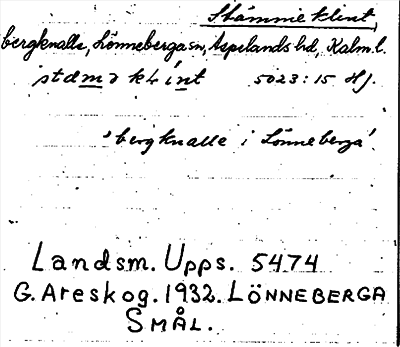 Stämmie klint,
bergknalle, Lönneberga sn, Aspelands hd, Kalm. l.
stæmɔ klint 5023:15 Hj.
'bergknalle i Lönneberga'.
Landsm. Upps. 5474
G. Areskog. 1932. LÖNNEBERGA
SMÅL.